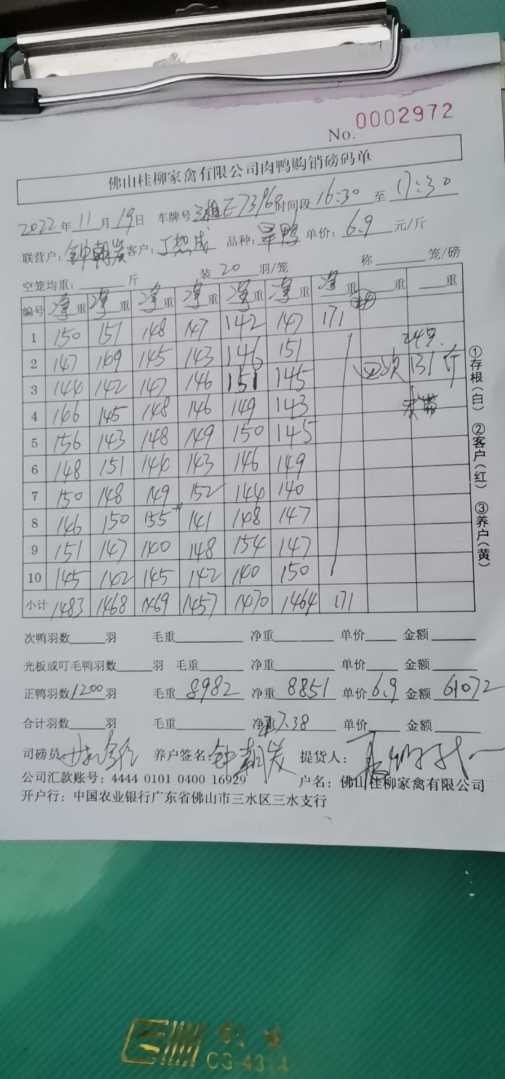 No. 0002972
佛山桂柳家禽有限公司肉鸭购销磅码单
2022年11月19日 车牌号 时间段16:30至17:30
联营户: 客户: 品种: 单价:6.9元/斤
空笼均重:____斤 装20羽/笼 称____笼/磅
编号 净重 净重 净重 净重 净重 净重 净 重 重
1 150 151 148 147 142 147 171
2 147 169 145 143 146 151 131斤
3 144 142 147 146 151 145
4 166 145 148 146 149 143
5 156 143 148 149 150 145
6 148 151 144 143 146 149
7 150 148 149 152 144 140
8 146 150 155 141 148 147
9 151 147 140 148 154 147
10 145 142 145 142 140 150
小计 1483 1468 1469 1457 1470 1464 171
①存根(白) ②客户(红) ③养户(黄)
次鸭羽数____羽 毛重____ 净重____ 单价____ 金额____
光板或叮毛鸭羽数____羽 毛重____ 净重____ 单价____ 金额____
正鸭羽数1200羽 毛重8982 净重8851 单价6.9 金额61072
合计羽数____羽 毛重____ 净重7.38 单价____ 金额____
司磅员 养户签名: 提货人:
公司汇款账号: 4444 0101 0400 16929 户名: 佛山桂柳家禽有限公司
开户行: 中国农业银行广东省佛山市三水区三水支行